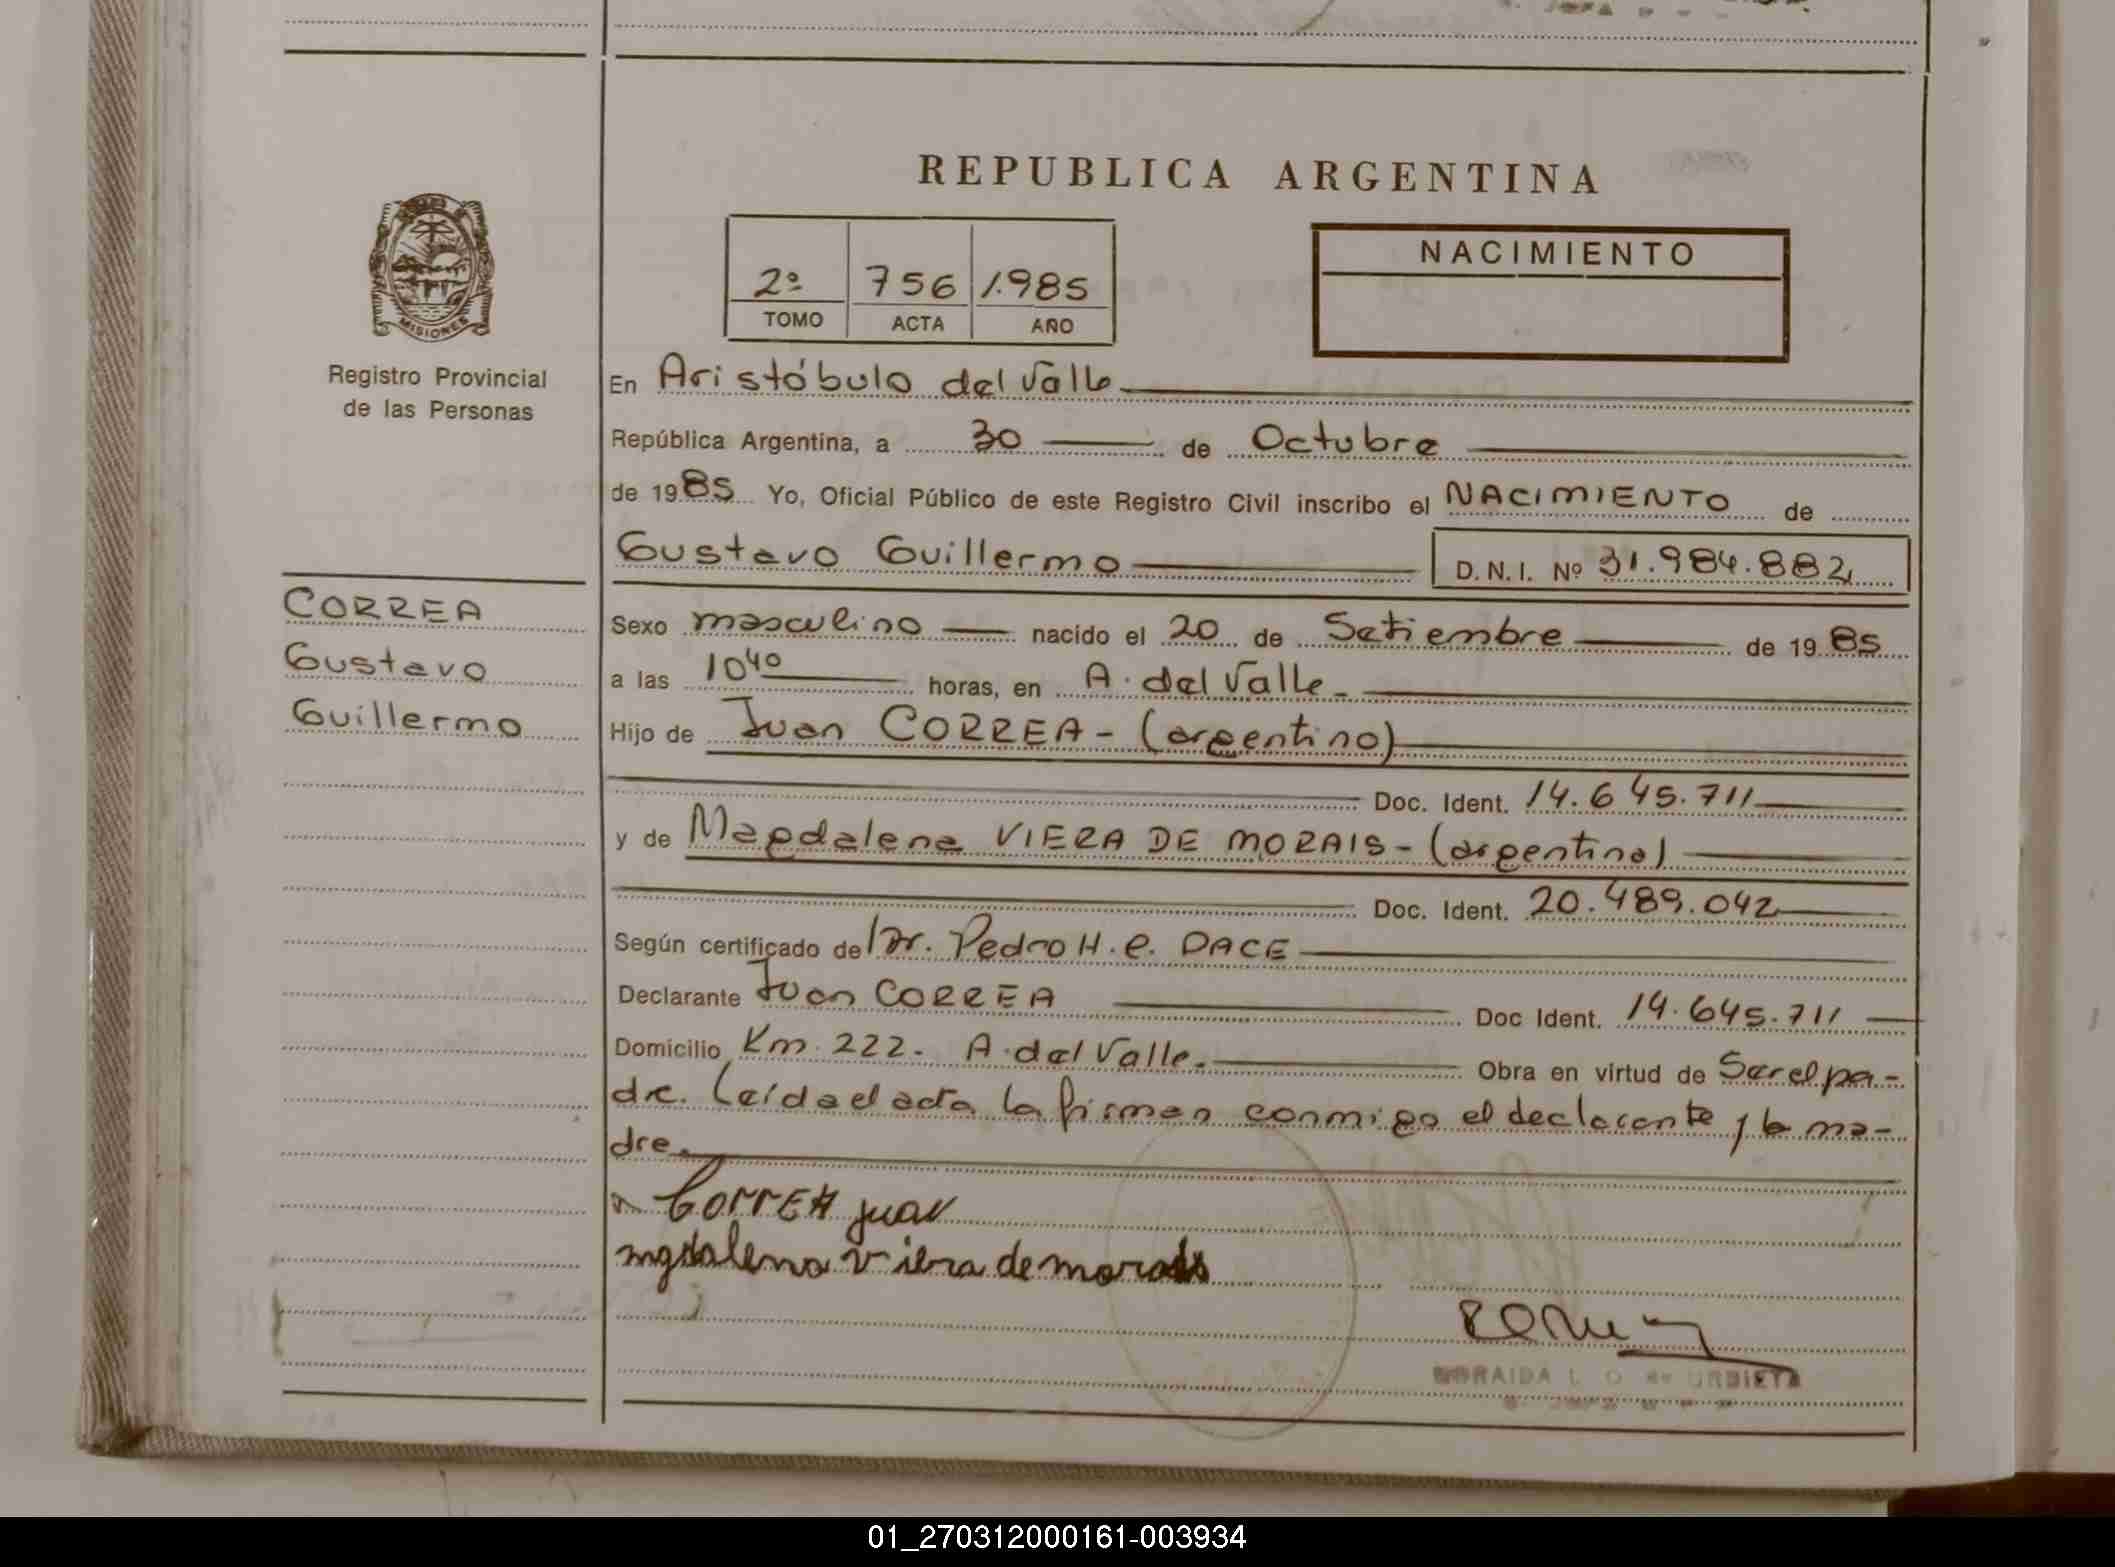 REPUBLICA ARGENTINA
MISIONES
Registro Provincial
de las Personas
CORREA
Gustavo
Guillermo
2º 756 1.985
TOMO ACTA AÑO
NACIMIENTO
En Aristóbulo del Valle
República Argentina, a 30 de Octubre
de 1985 Yo, Oficial Público de este Registro Civil inscribo el NACIMIENTO de
Gustavo Guillermo D.N.I. Nº 31.984.882
Sexo masculino nacido el 20 de Setiembre de 1985
a las 10⁴⁰ horas, en A. del Valle.
Hijo de Juan CORREA - (argentino)
Doc. Ident. 14.645.711
y de Magdalena VIERA DE MORAIS - (argentina)
Doc. Ident. 20.489.042
Según certificado de Dr. Pedro H. C. DACE
Declarante Juan CORREA Doc Ident. 14.645.711
Domicilio Km. 222. A. del Valle. Obra en virtud de Ser el pa-
dre. Leída el acta la firman conmigo el declarante y la ma-
dre.
CorrEA juan
mgdalena viera de morais
URBIETA
01_270312000161-003934